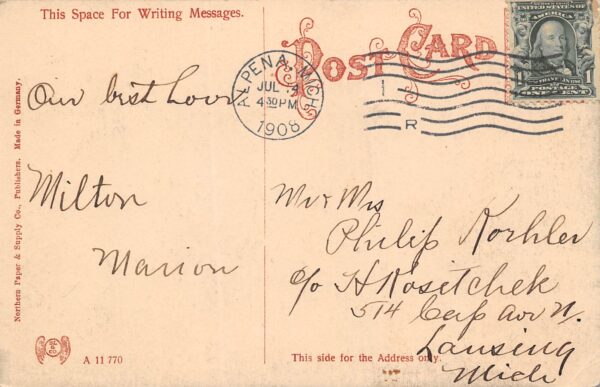 This Space For Writing Messages.
POST CARD
UNITED STATES OF
AMERICA
FRANKLIN
POSTAGE
1 ONE CENT 1
ALPENA, MICH.
JUL 4
4 30 PM
1908
1
R
Our best love
Milton
Marion
Mr & Mrs
Philip Koehler
c/o H Rositchek
514 Cap Ave N.
Lansing
Mich
Northern Paper & Supply Co., Publishers. Made in Germany.
A 11 770
This side for the Address only.